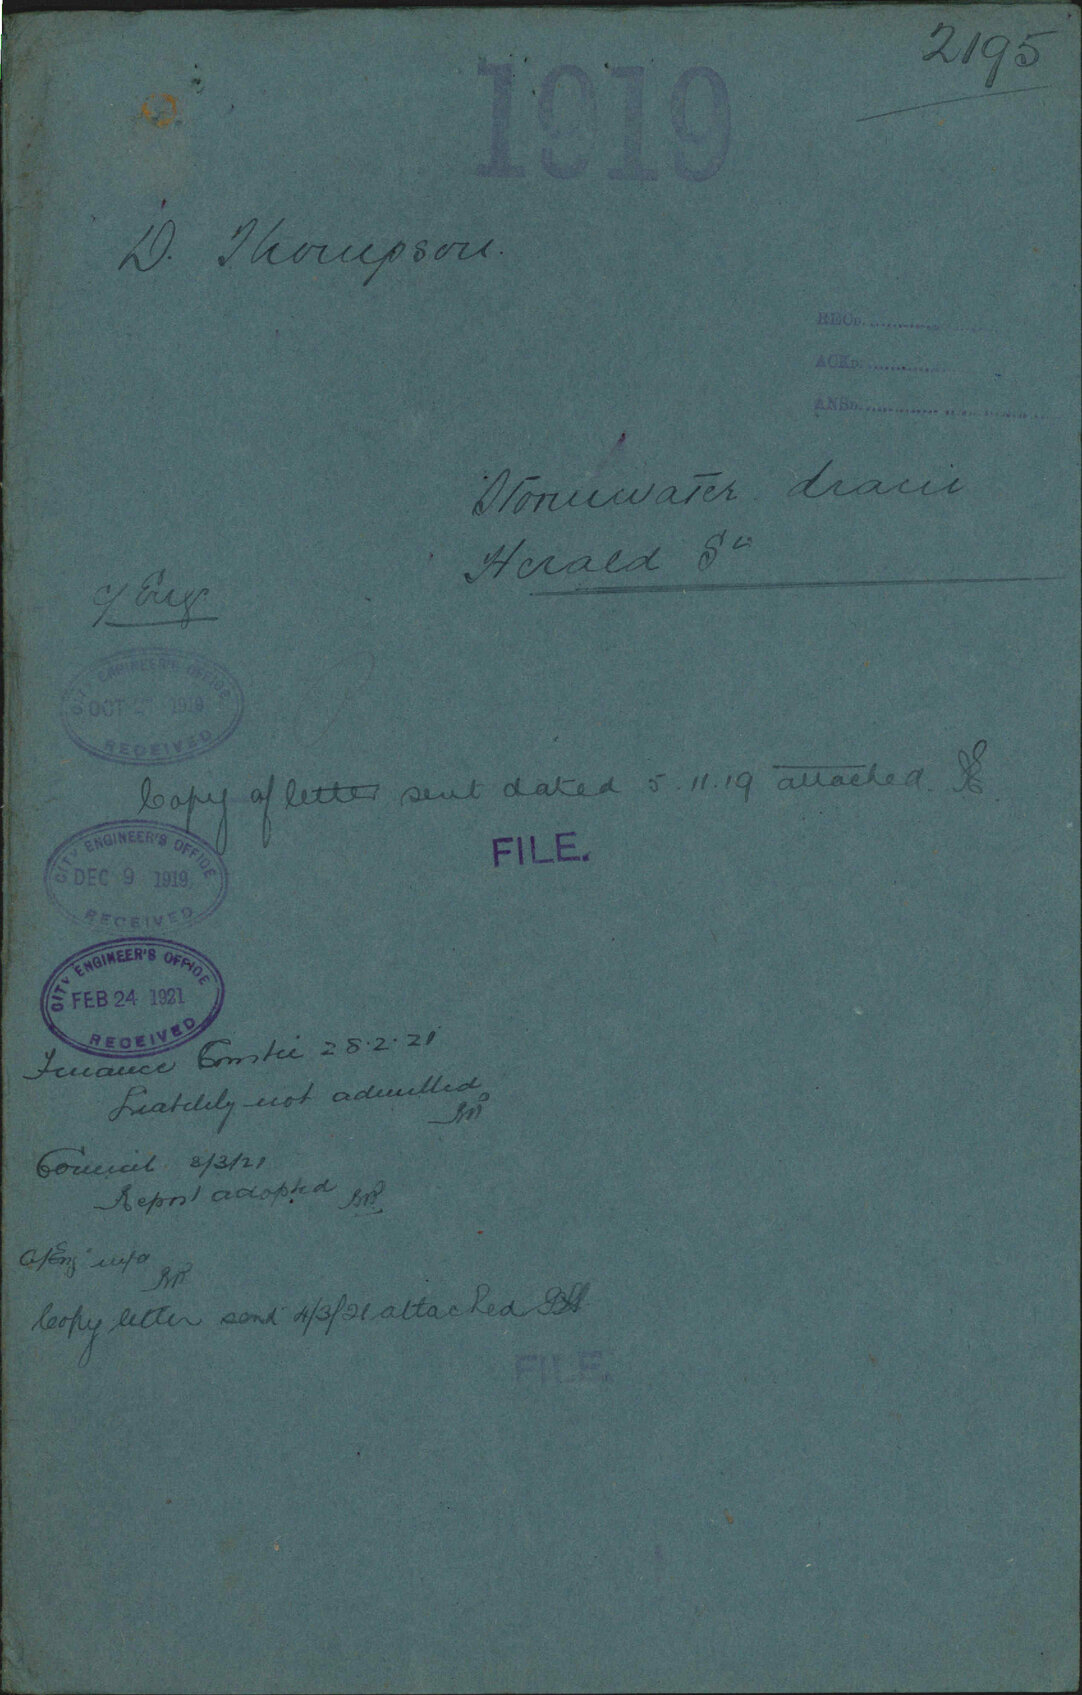 2195
1919
D. Thompson.
RECD.
ACKD.
ANSD.
Stormwater drain
Herald St
C/Eng
CITY ENGINEER'S OFFICE
OCT 1919
RECEIVED
Copy of letter sent dated 5.11.19 attached.
FILE.
CITY ENGINEER'S OFFICE
DEC 9 1919
RECEIVED
CITY ENGINEER'S OFFICE
FEB 24 1921
RECEIVED
Finance Comtee 28.2.21
Liability not admitted
Council 3/21
Report adopted
C/Eng
Copy letter sent 4/3/21 attached
FILE.